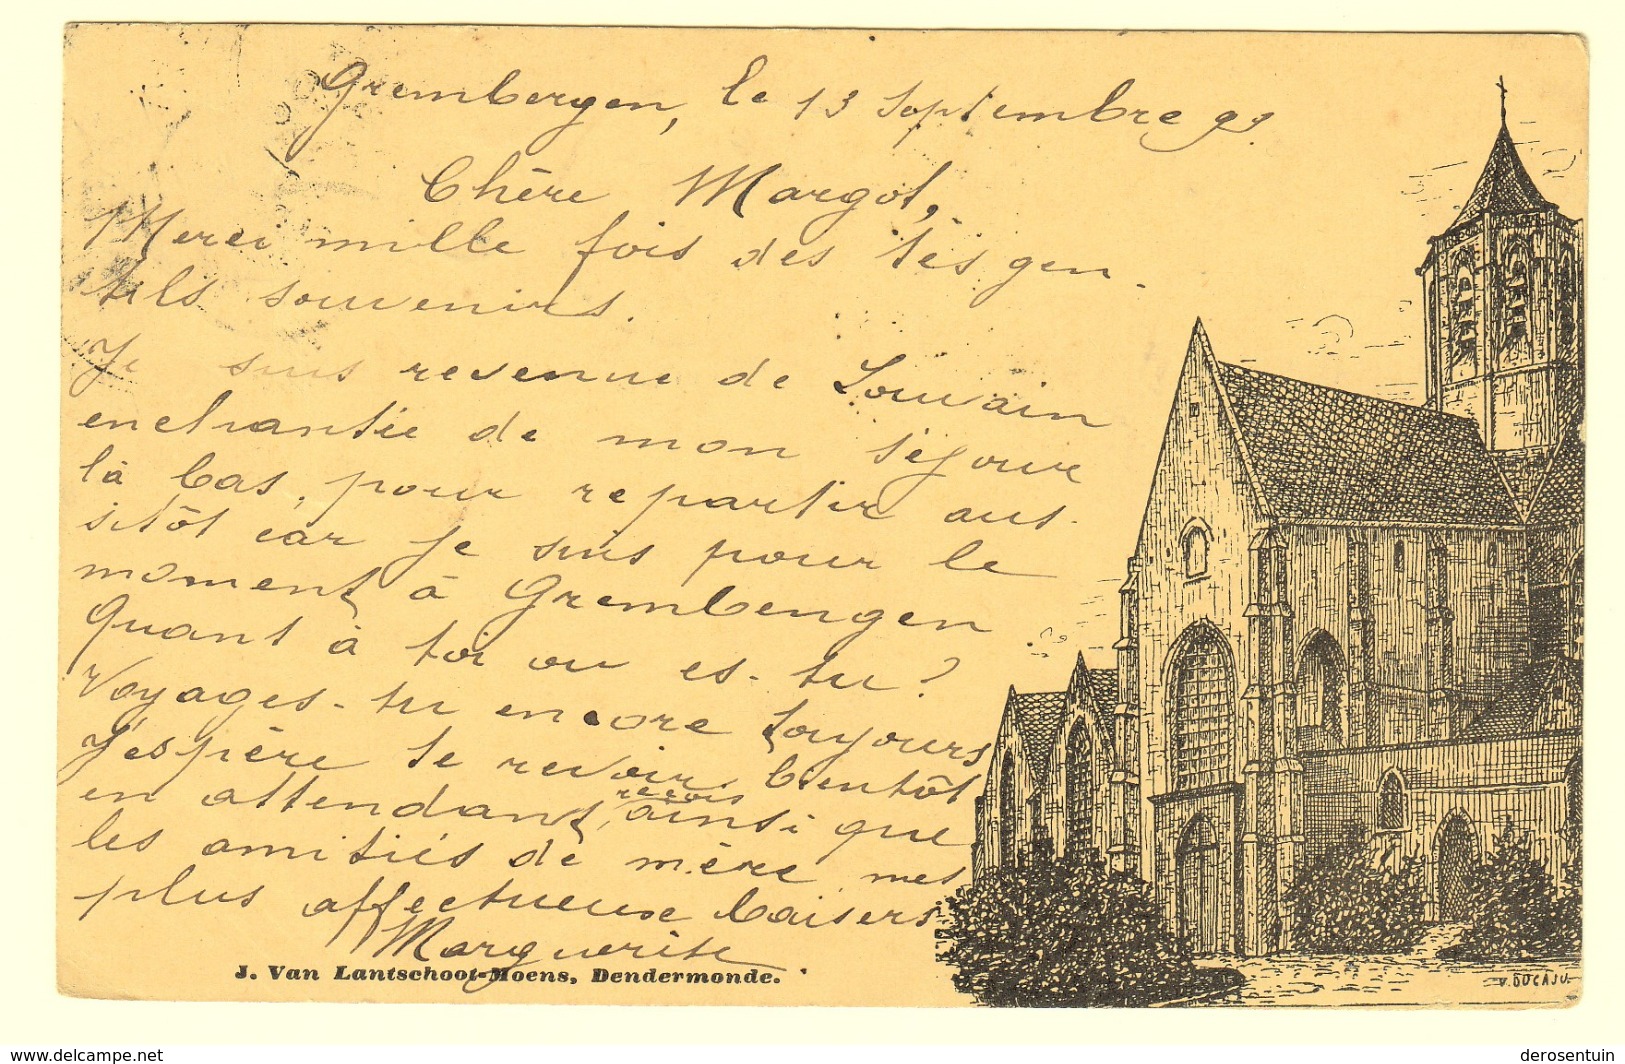 Grembergen, le 13 Septembre 99
Chère Margot,
Merci mille fois des tès gen
tils souvenirs.
Je suis revenue de Louvain
enchantée de mon séjour
là bas, pour repartir aus-
sitôt car je suis pour le
moment à Grembengen
Quant à toi ou es-tu?
Voyages-tu encore toujours
J'espère te revoir bientôt
en attendant, reçois ainsi que
les amitiés de mère mes
plus affectueuse baisers
Marguerite
J. Van Lantschoot-Moens, Dendermonde.
V. DUCAJU.
delcampe.net
derosentuin